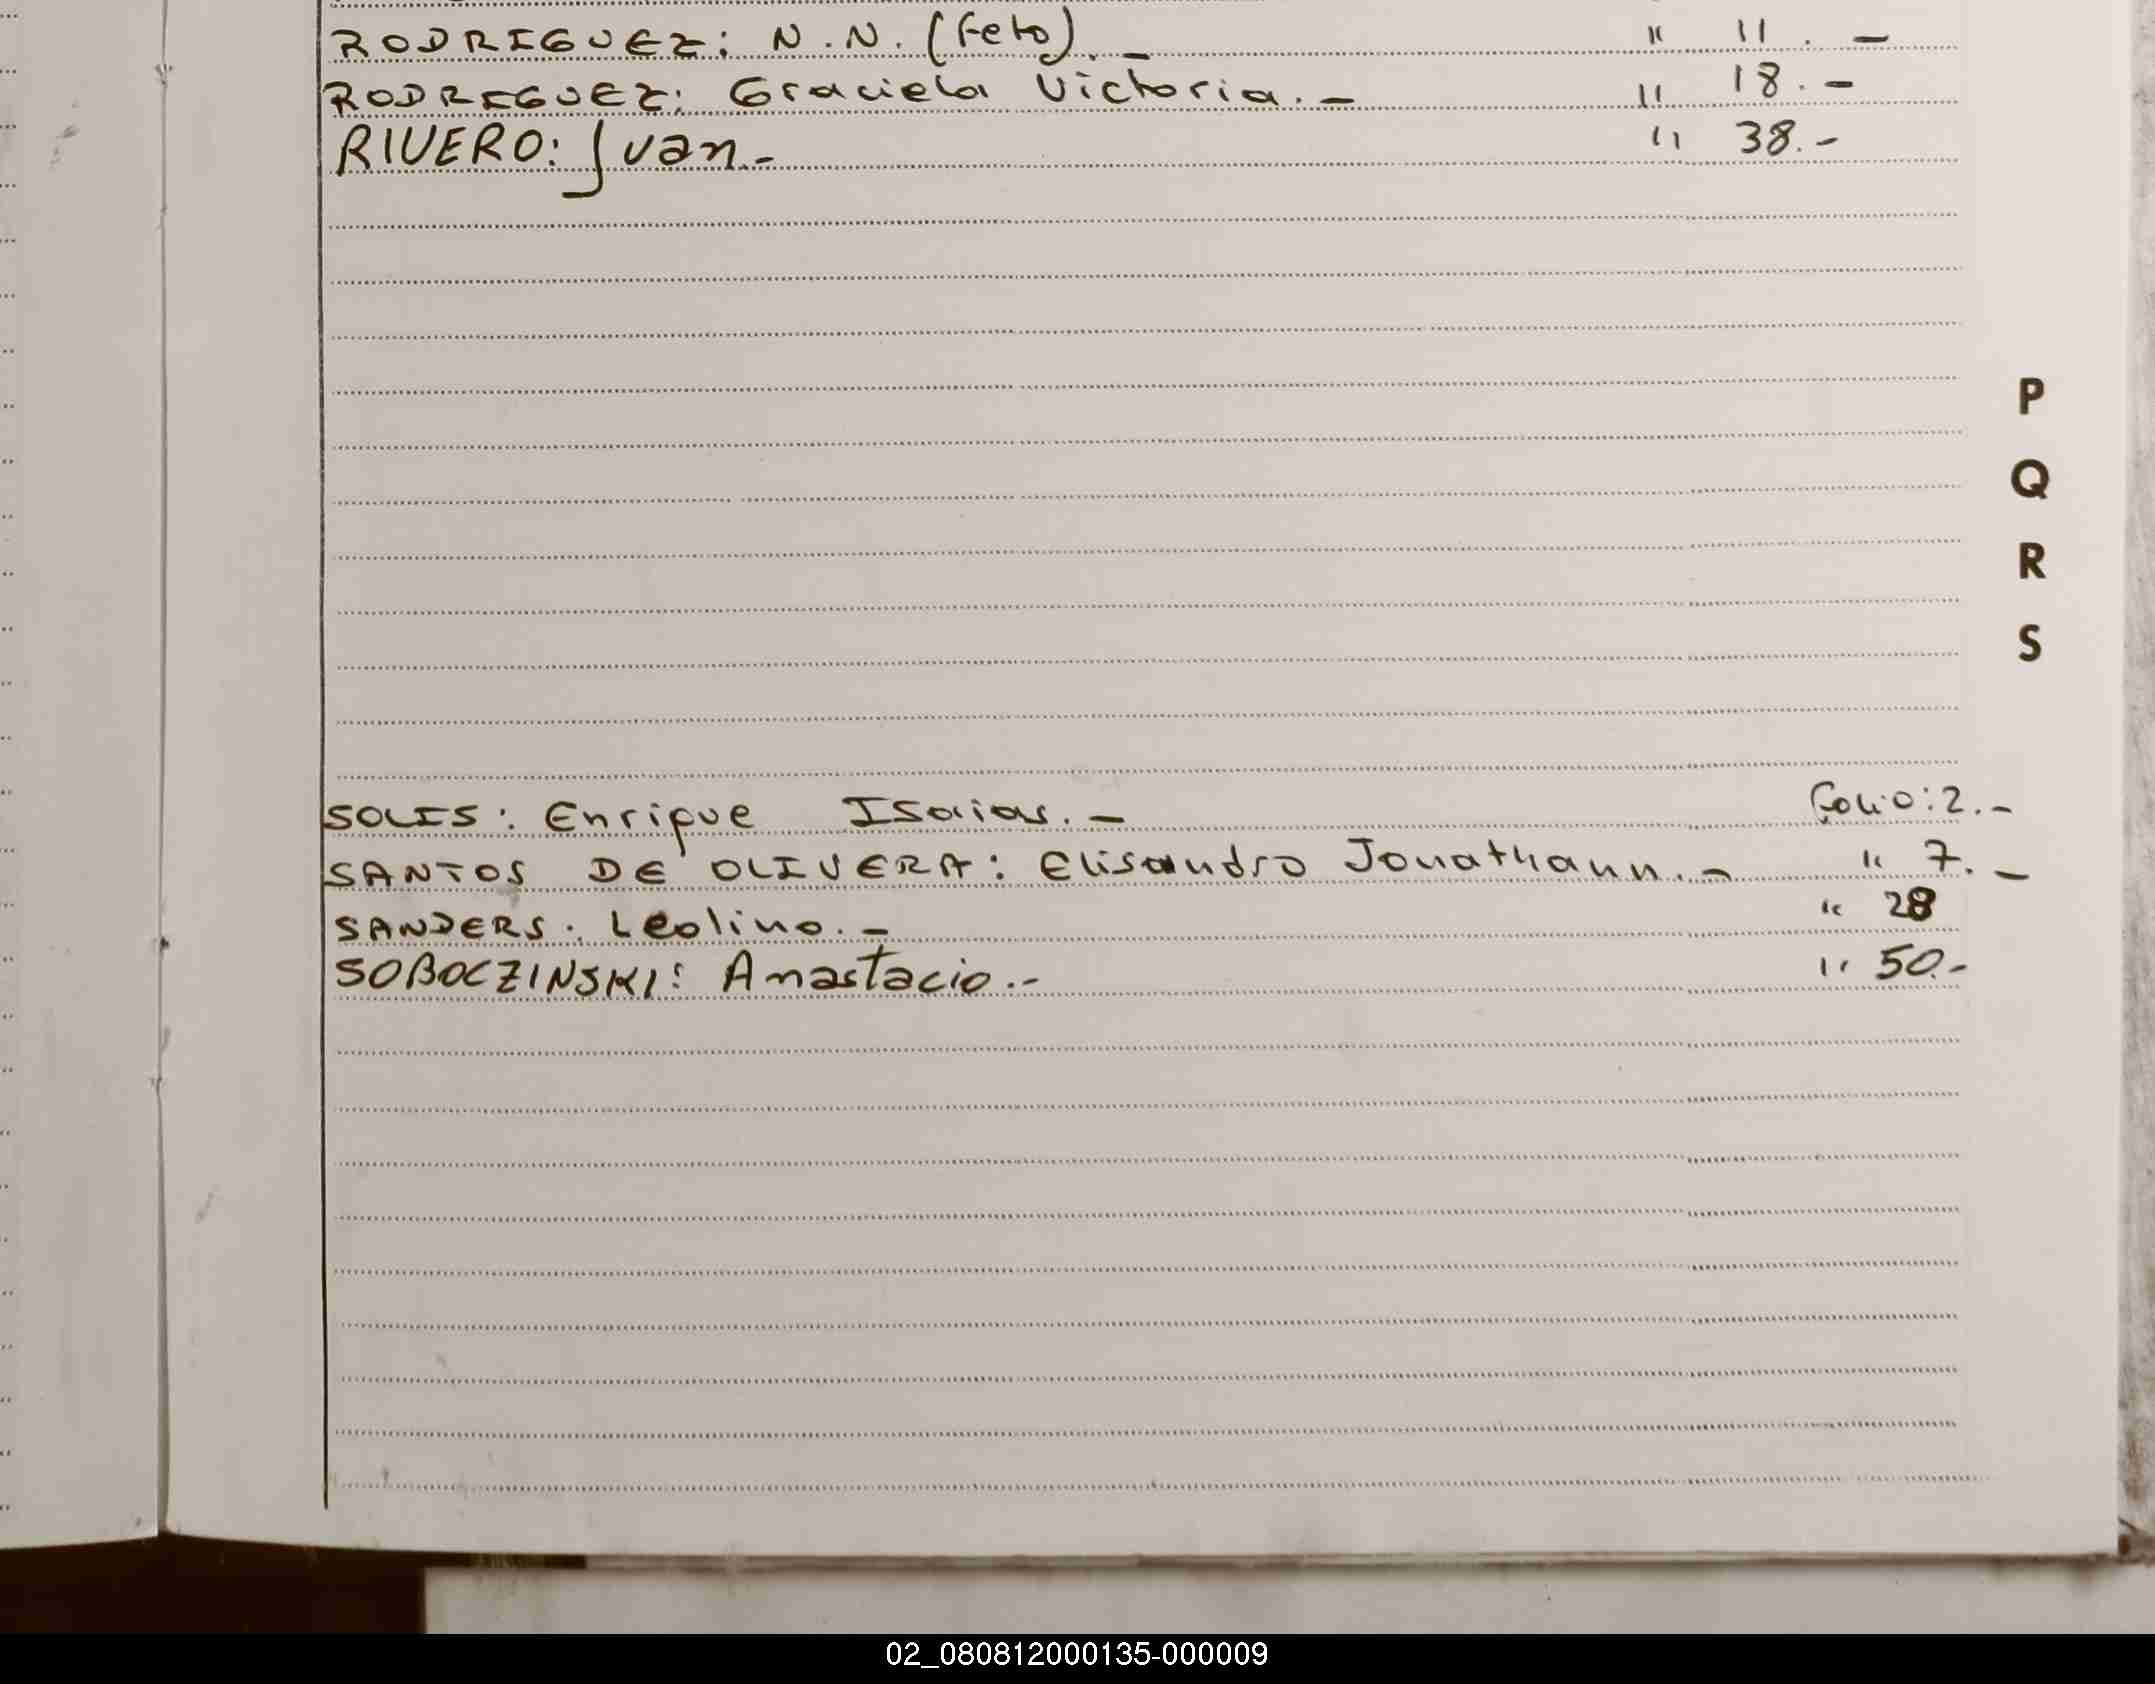 RODRIGUEZ: N.N. (Feto).- " 11.-
RODRIGUEZ: Graciela Victoria.- " 18.-
RIVERO: Juan.- " 38.-
P
Q
R
S
SOLIS: Enrique Isaias.- Folio: 2.-
SANTOS DE OLIVERA: Elisandro Jonathann.- " 7.-
SANDERS: Leolino.- " 28
SOBOCZINSKI: Anastacio.- " 50.-
02_080812000135-000009